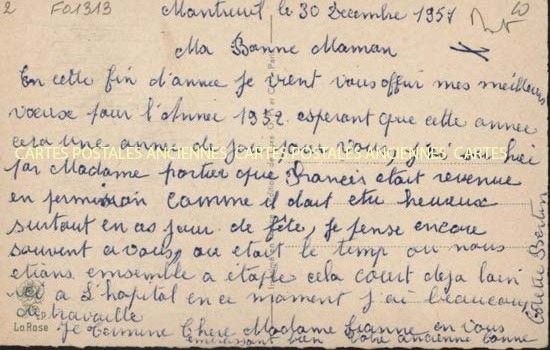 2 F01313
Montreuil le 30 Decembre 1951
10
Ma Bonne Maman
En cette fin d'année je vient vous offrir mes meilleurs
voeuse pour l'Année 1952 esperant que cette annee
cera une annee de joie pour vous
CARTES POSTALES ANCIENNES CARTES POSTALES ANCIENNES CARTES
par Madame portier que Francis etait revenue
en permission comme il doit etre heureux
surtout en as jour de fête, je pense encore
souvent a vous, ou etait le temp ou nous
etions ensemble a etaple cela court deja loin
ici a l'hopital en ce moment j'ai beaucoup
de travaille
La Rose
Je termine Chere Madame Jeanne en vous
embrassant bien Votre ancienne bonne
Colette Bertin